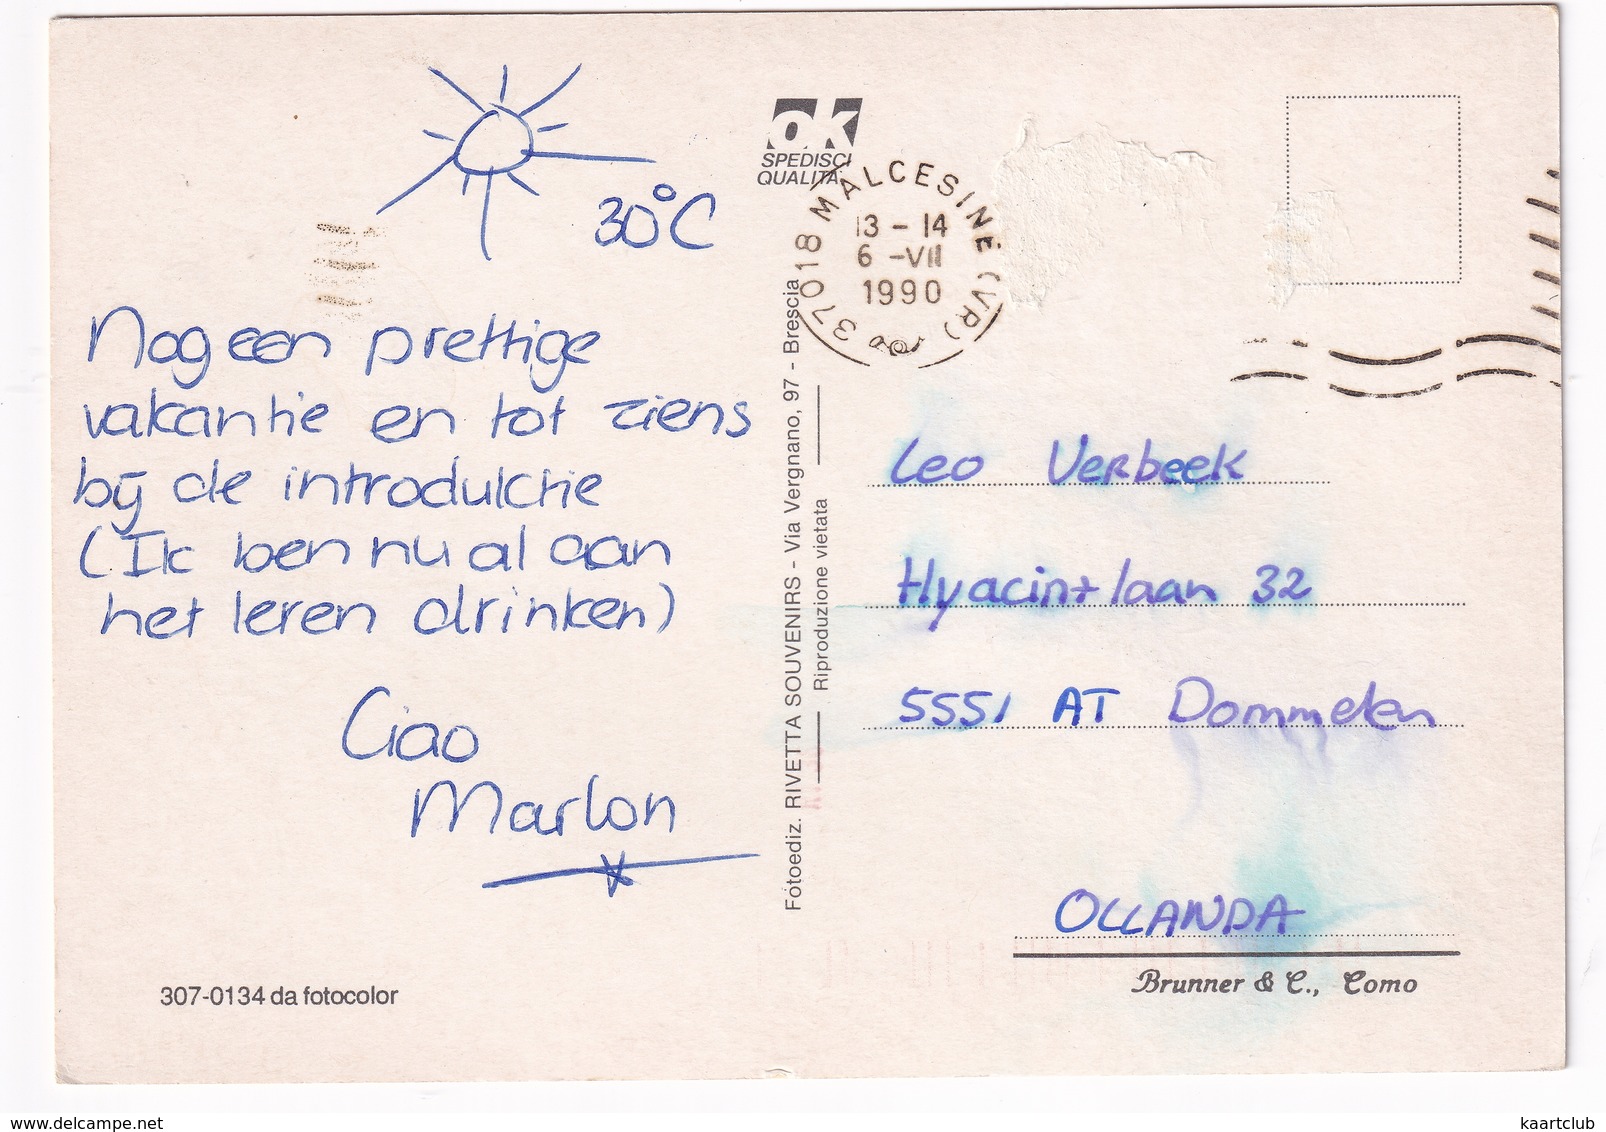 30°C
Nog een prettige
vakantie en tot ziens
bij de introduktie
(Ik ben nu al aan
het leren drinken)
Ciao
Marlon
307-0134 da fotocolor
ok
SPEDISCI
QUALITÀ
37018 MALCESINE (VR)
13 - 14
6 -VII
1990
Fotoediz. RIVETTA SOUVENIRS - Via Vergnano, 97 - Brescia
Riproduzione vietata
Leo Verbeek
Hyacintlaan 32
5551 AT Dommelen
OLLANDA
Brunner & C., Como
www.delcampe.net
kaartclub